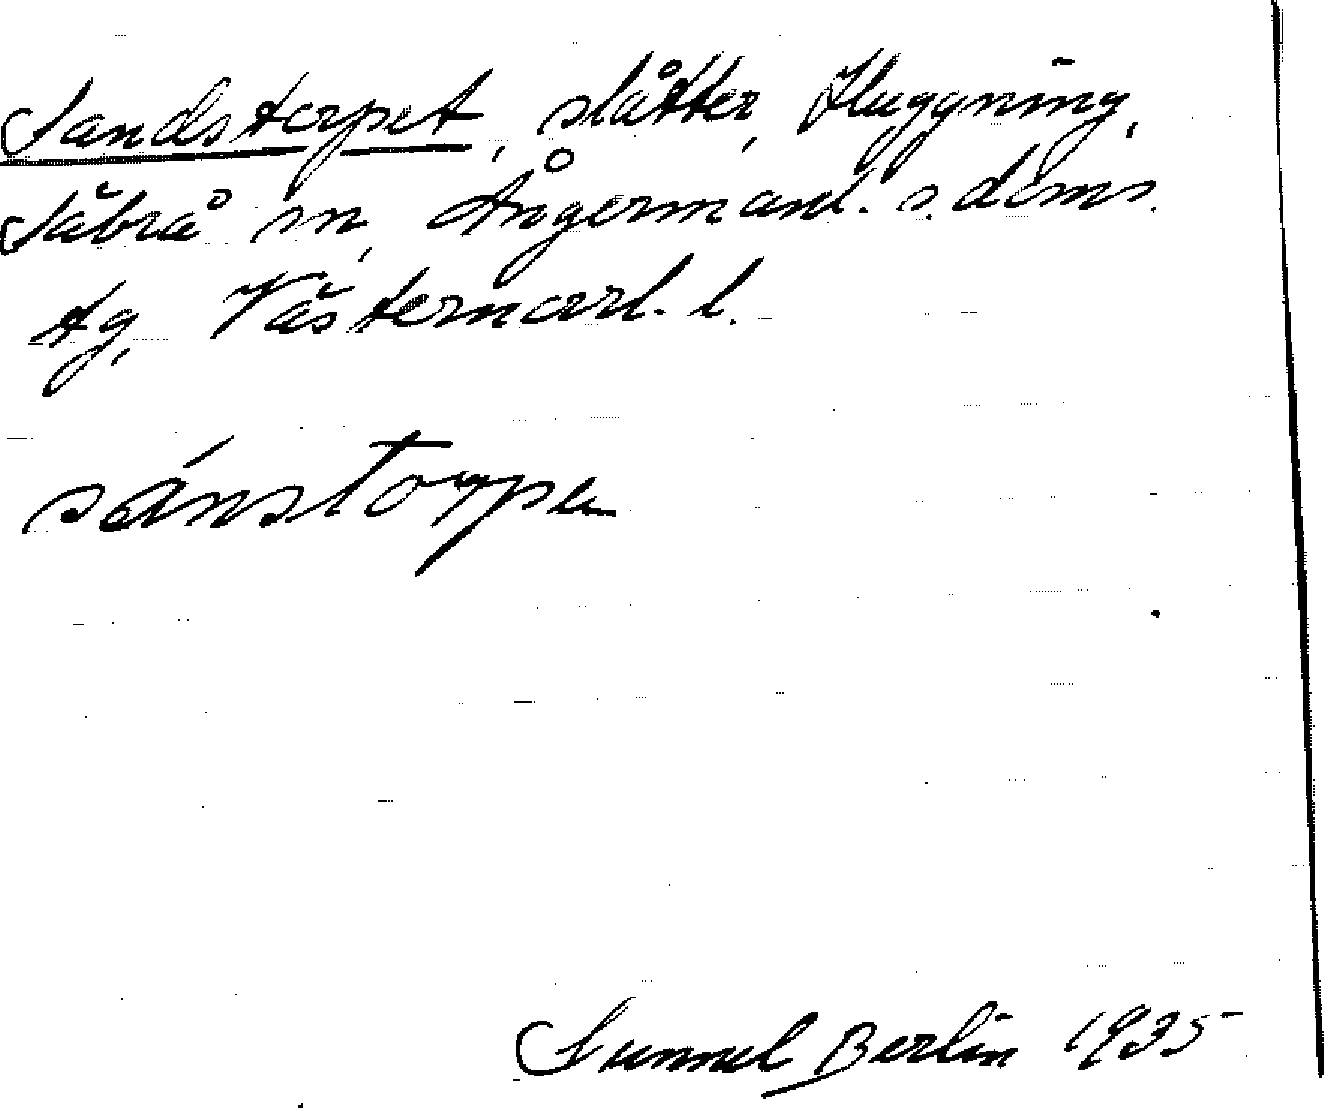 Sandstorpet, slåtter, Huggning,
Säbrå sn, Ångermanl. s. doms.
tg, Västernorrl. l.
sánstorpa
Gunnel Berlin 1935